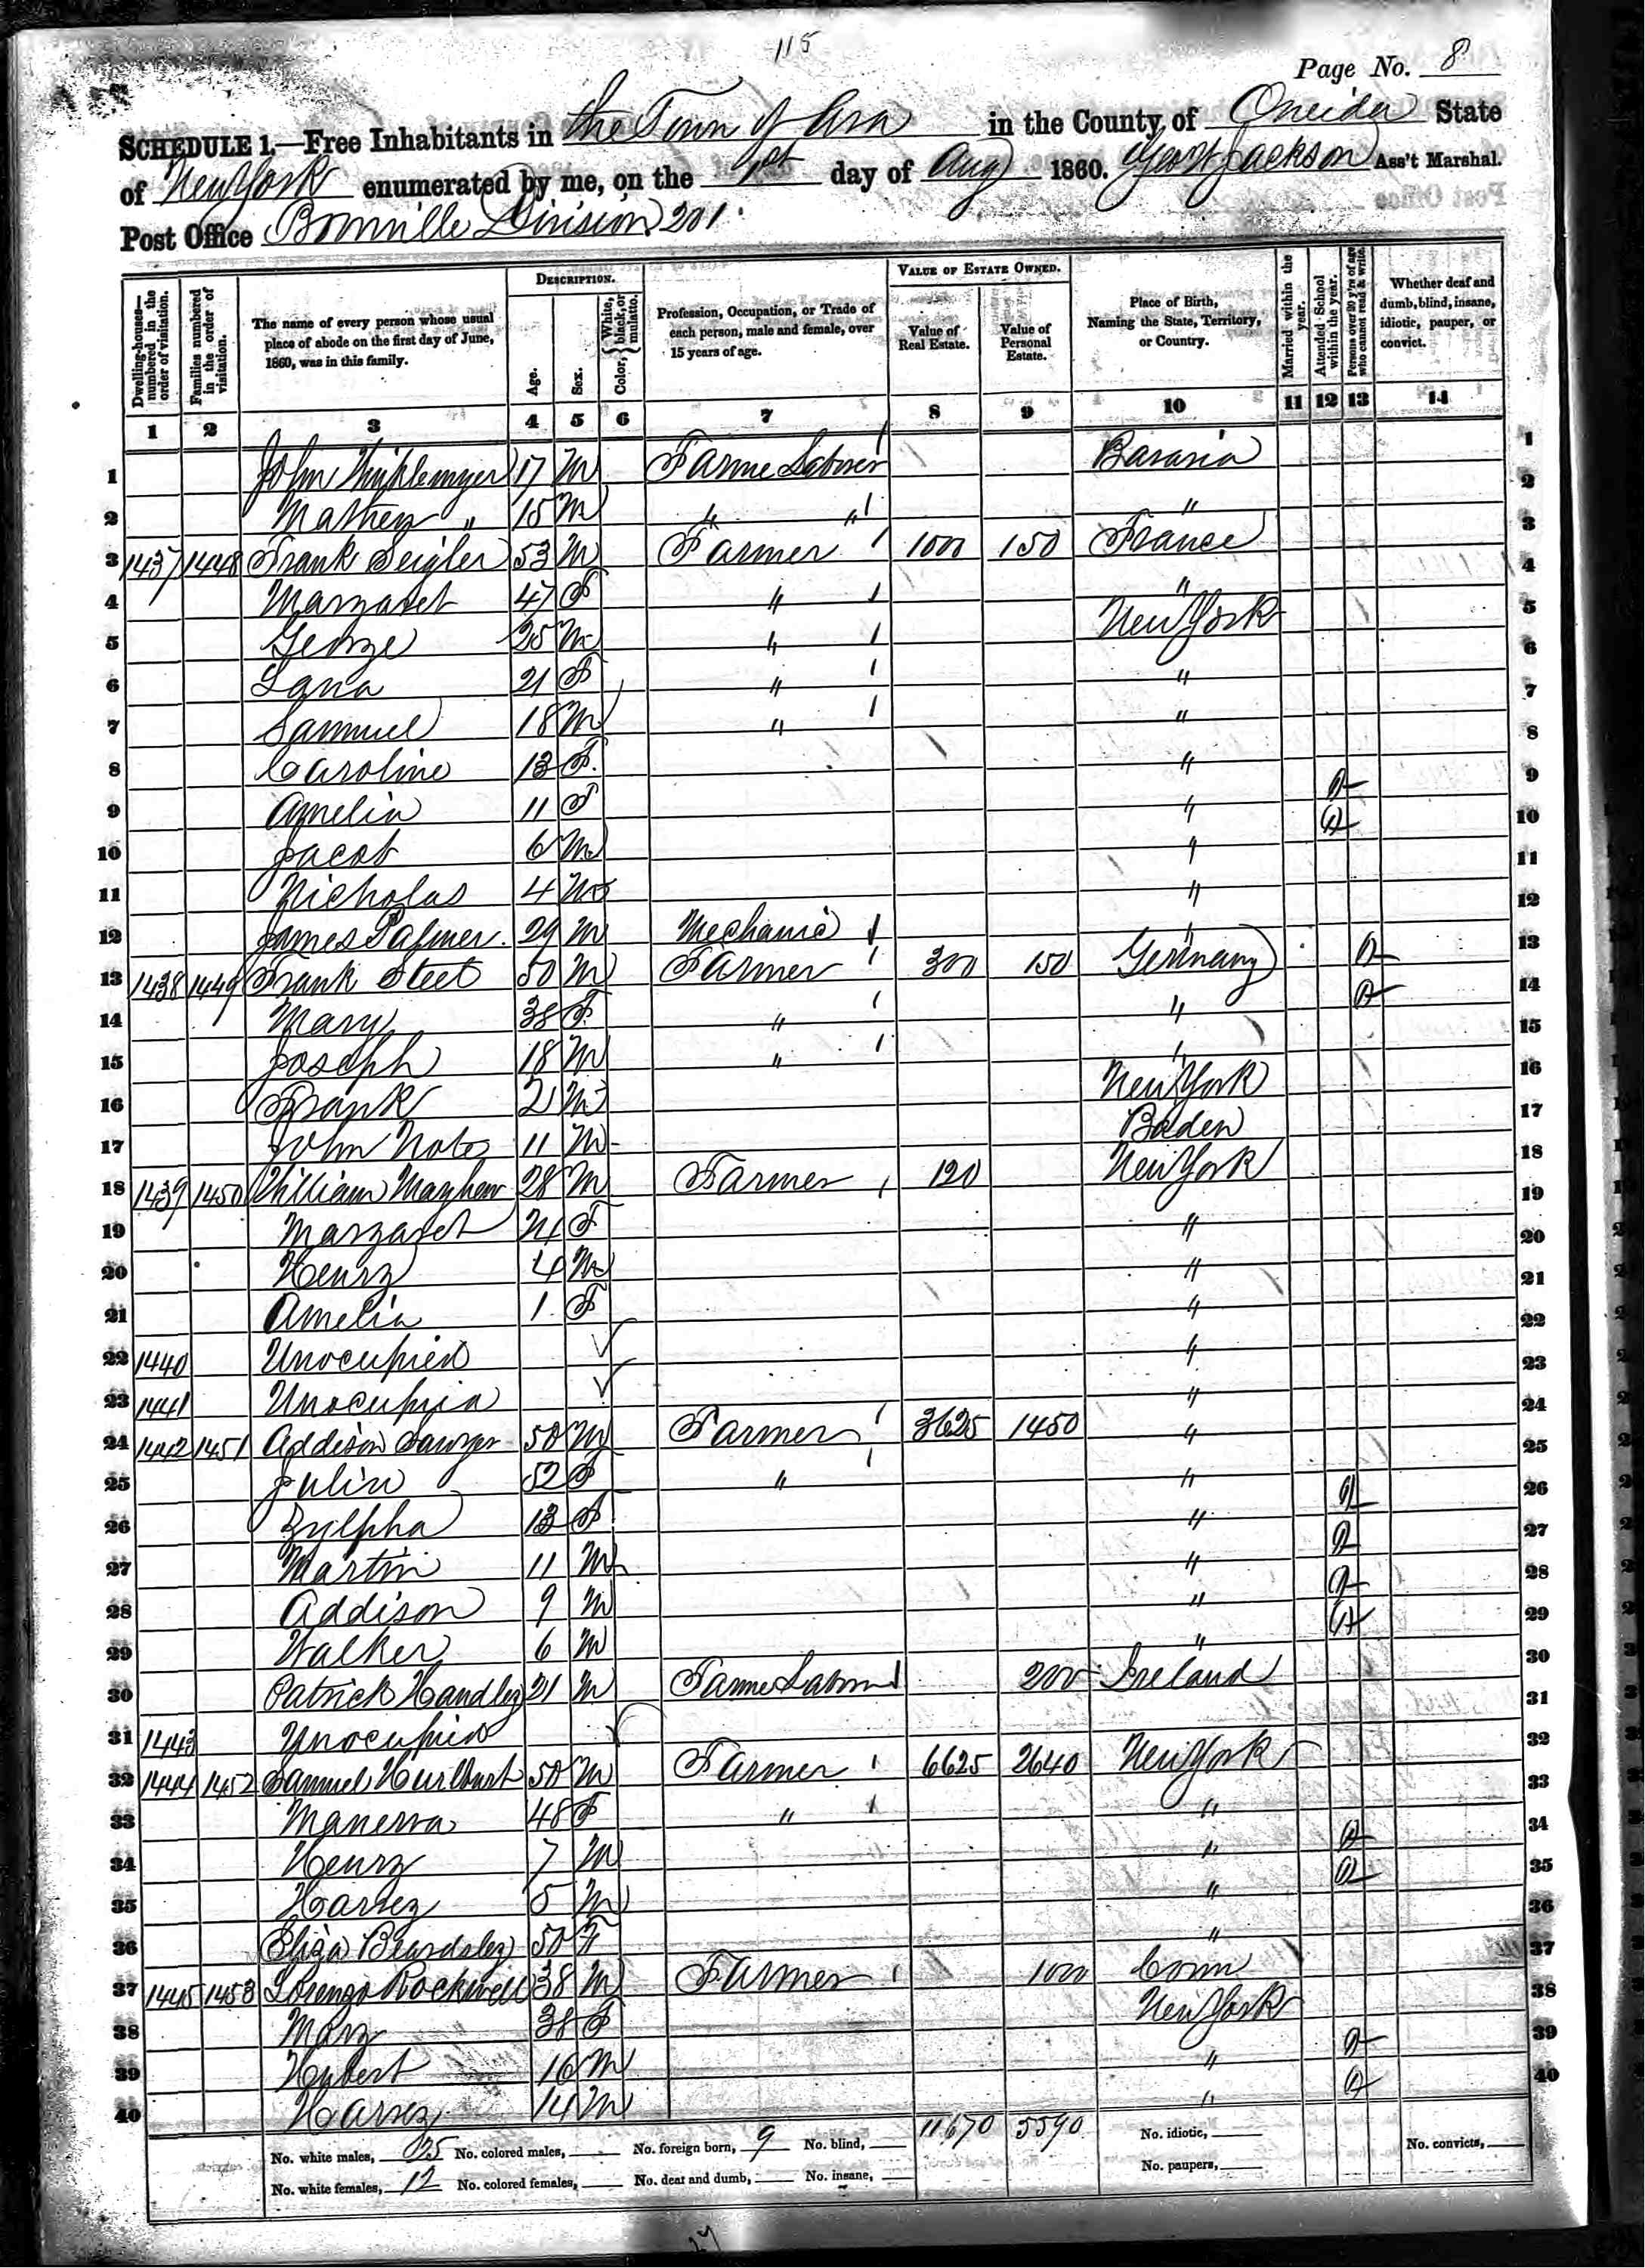 115
Page No. 8
SCHEDULE 1.—Free Inhabitants in the Town of Ava in the County of Oneida State
of New York enumerated by me, on the 1st day of Aug 1860. Geo W Jackson Ass't Marshal.
Post Office Boonville Division 201.
Dwelling-houses—numbered in the order of visitation.
Families numbered in the order of visitation.
The name of every person whose usual place of abode on the first day of June, 1860, was in this family.
DESCRIPTION.
Age.
Sex.
Color, { White, black, or mulatto.
Profession, Occupation, or Trade of each person, male and female, over 15 years of age.
VALUE OF ESTATE OWNED.
Value of Real Estate.
Value of Personal Estate.
Place of Birth, Naming the State, Territory, or Country.
Married within the year.
Attended School within the year.
Persons over 20 y'rs of age who cannot read & write.
Whether deaf and dumb, blind, insane, idiotic, pauper, or convict.
1 2 3 4 5 6 7 8 9 10 11 12 13 14
1 John 17 M Farme Laborer Bavaria 1
2 Mathew " 15 M " " " 2
3 1437 1448 Frank Seigler 53 M Farmer 1000 150 France 3
4 Margaret 47 F " " 4
5 George 25 M " New York 5
6 Lana 21 F " " 6
7 Samuel 18 M " " 7
8 Caroline 13 F " 8
9 Amelia 11 F " 9
10 Jacob 6 M " 10
11 Nicholas 4 M " 11
12 James Palmer 29 M Mechanic " 12
13 1438 1449 Frank Steet 50 M Farmer 300 150 Germany 13
14 Mary 38 F " " 14
15 Joseph 18 M " " 15
16 Frank 2 M New York 16
17 John Notes 11 M Baden 17
18 1439 1450 William Mayhew 28 M Farmer 120 New York 18
19 Margaret 24 F " 19
20 Henry 4 M " 20
21 Amelia 1 F " 21
22 1440 Unocupied " 22
23 1441 Unocupied " 23
24 1442 1451 Addison Sawyer 50 M Farmer 3625 1450 " 24
25 Julia 52 F " " 25
26 Zylpha 13 F " 26
27 Martin 11 M " 27
28 Addison 9 M " 28
29 Walker 6 M " 29
30 Patrick Handley 21 M Farme Labor 200 Ireland 30
31 1443 Unocupied 31
32 1444 1452 Samuel Hurlburt 50 M Farmer 6625 2640 New York 32
33 Manerva 48 F " " 33
34 Henry 7 M " 34
35 Harvey 5 M " 35
36 Eliza Beardsley 50 F " 36
37 1445 1453 Lorenzo Rockwell 38 M Farmer 1000 Conn 37
38 Mary 38 F New York 38
39 Hubert 16 M " 39
40 Harvey 14 M " 40
11.670 5590
No. white males, 25 No. colored males, No. foreign born, 9 No. blind, No. idiotic, No. convicts,
No. white females, 12 No. colored females, No. deaf and dumb, No. insane, No. paupers,